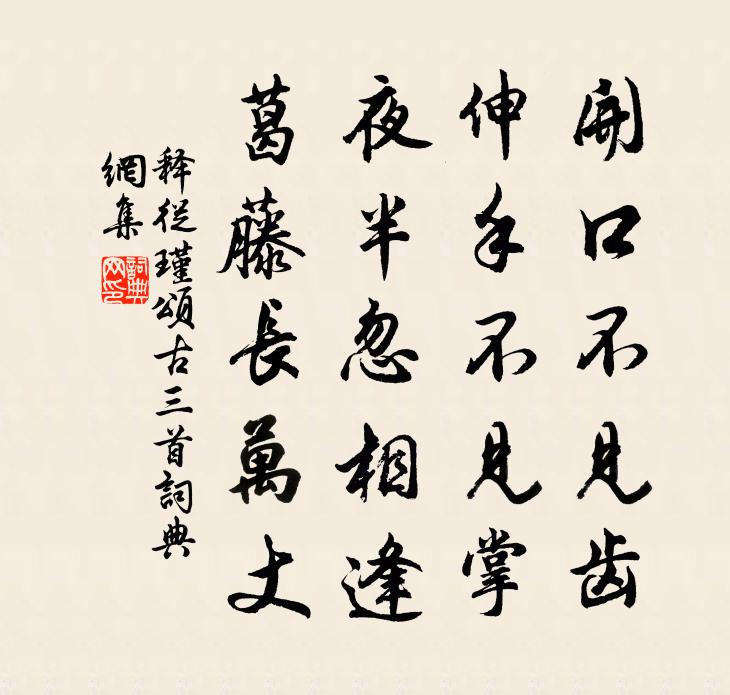 開口不見齿
伸手不見掌
夜半忽相逢
葛藤長萬丈
释從瑾頌古三首詞典
網集
詞典
网印